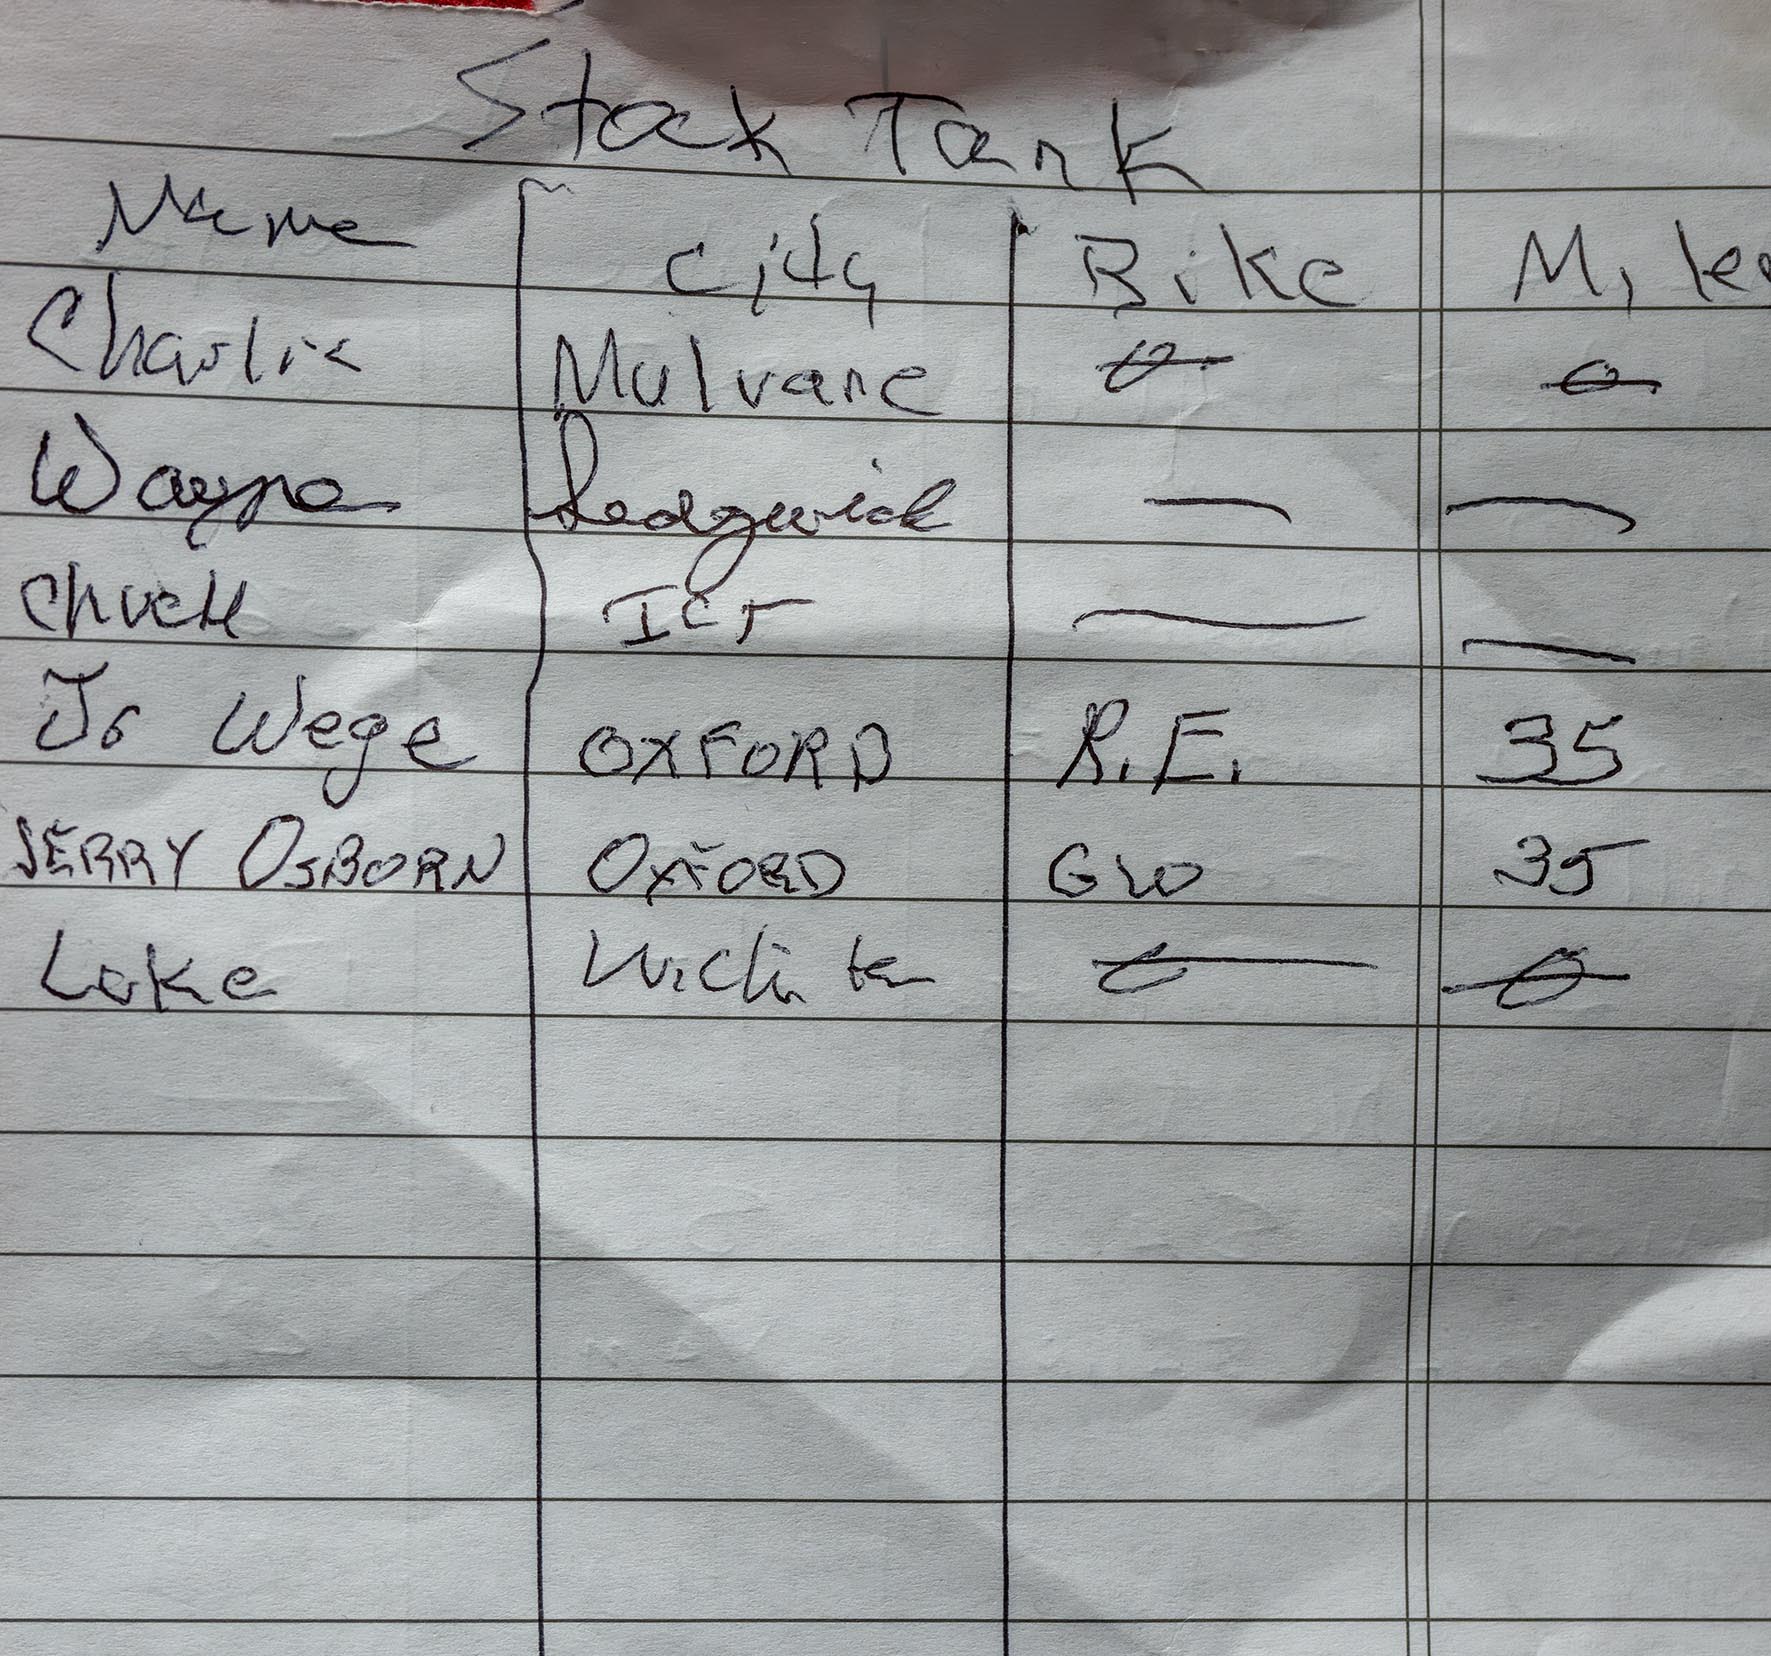 Stock Tank
Name City Bike Mile
Charlie Mulvane
Wayne Sedgwick — —
Chuck ICT — —
Jo Wege OXFORD R.E. 35
JERRY OSBORN OXFORD 35
Wichita